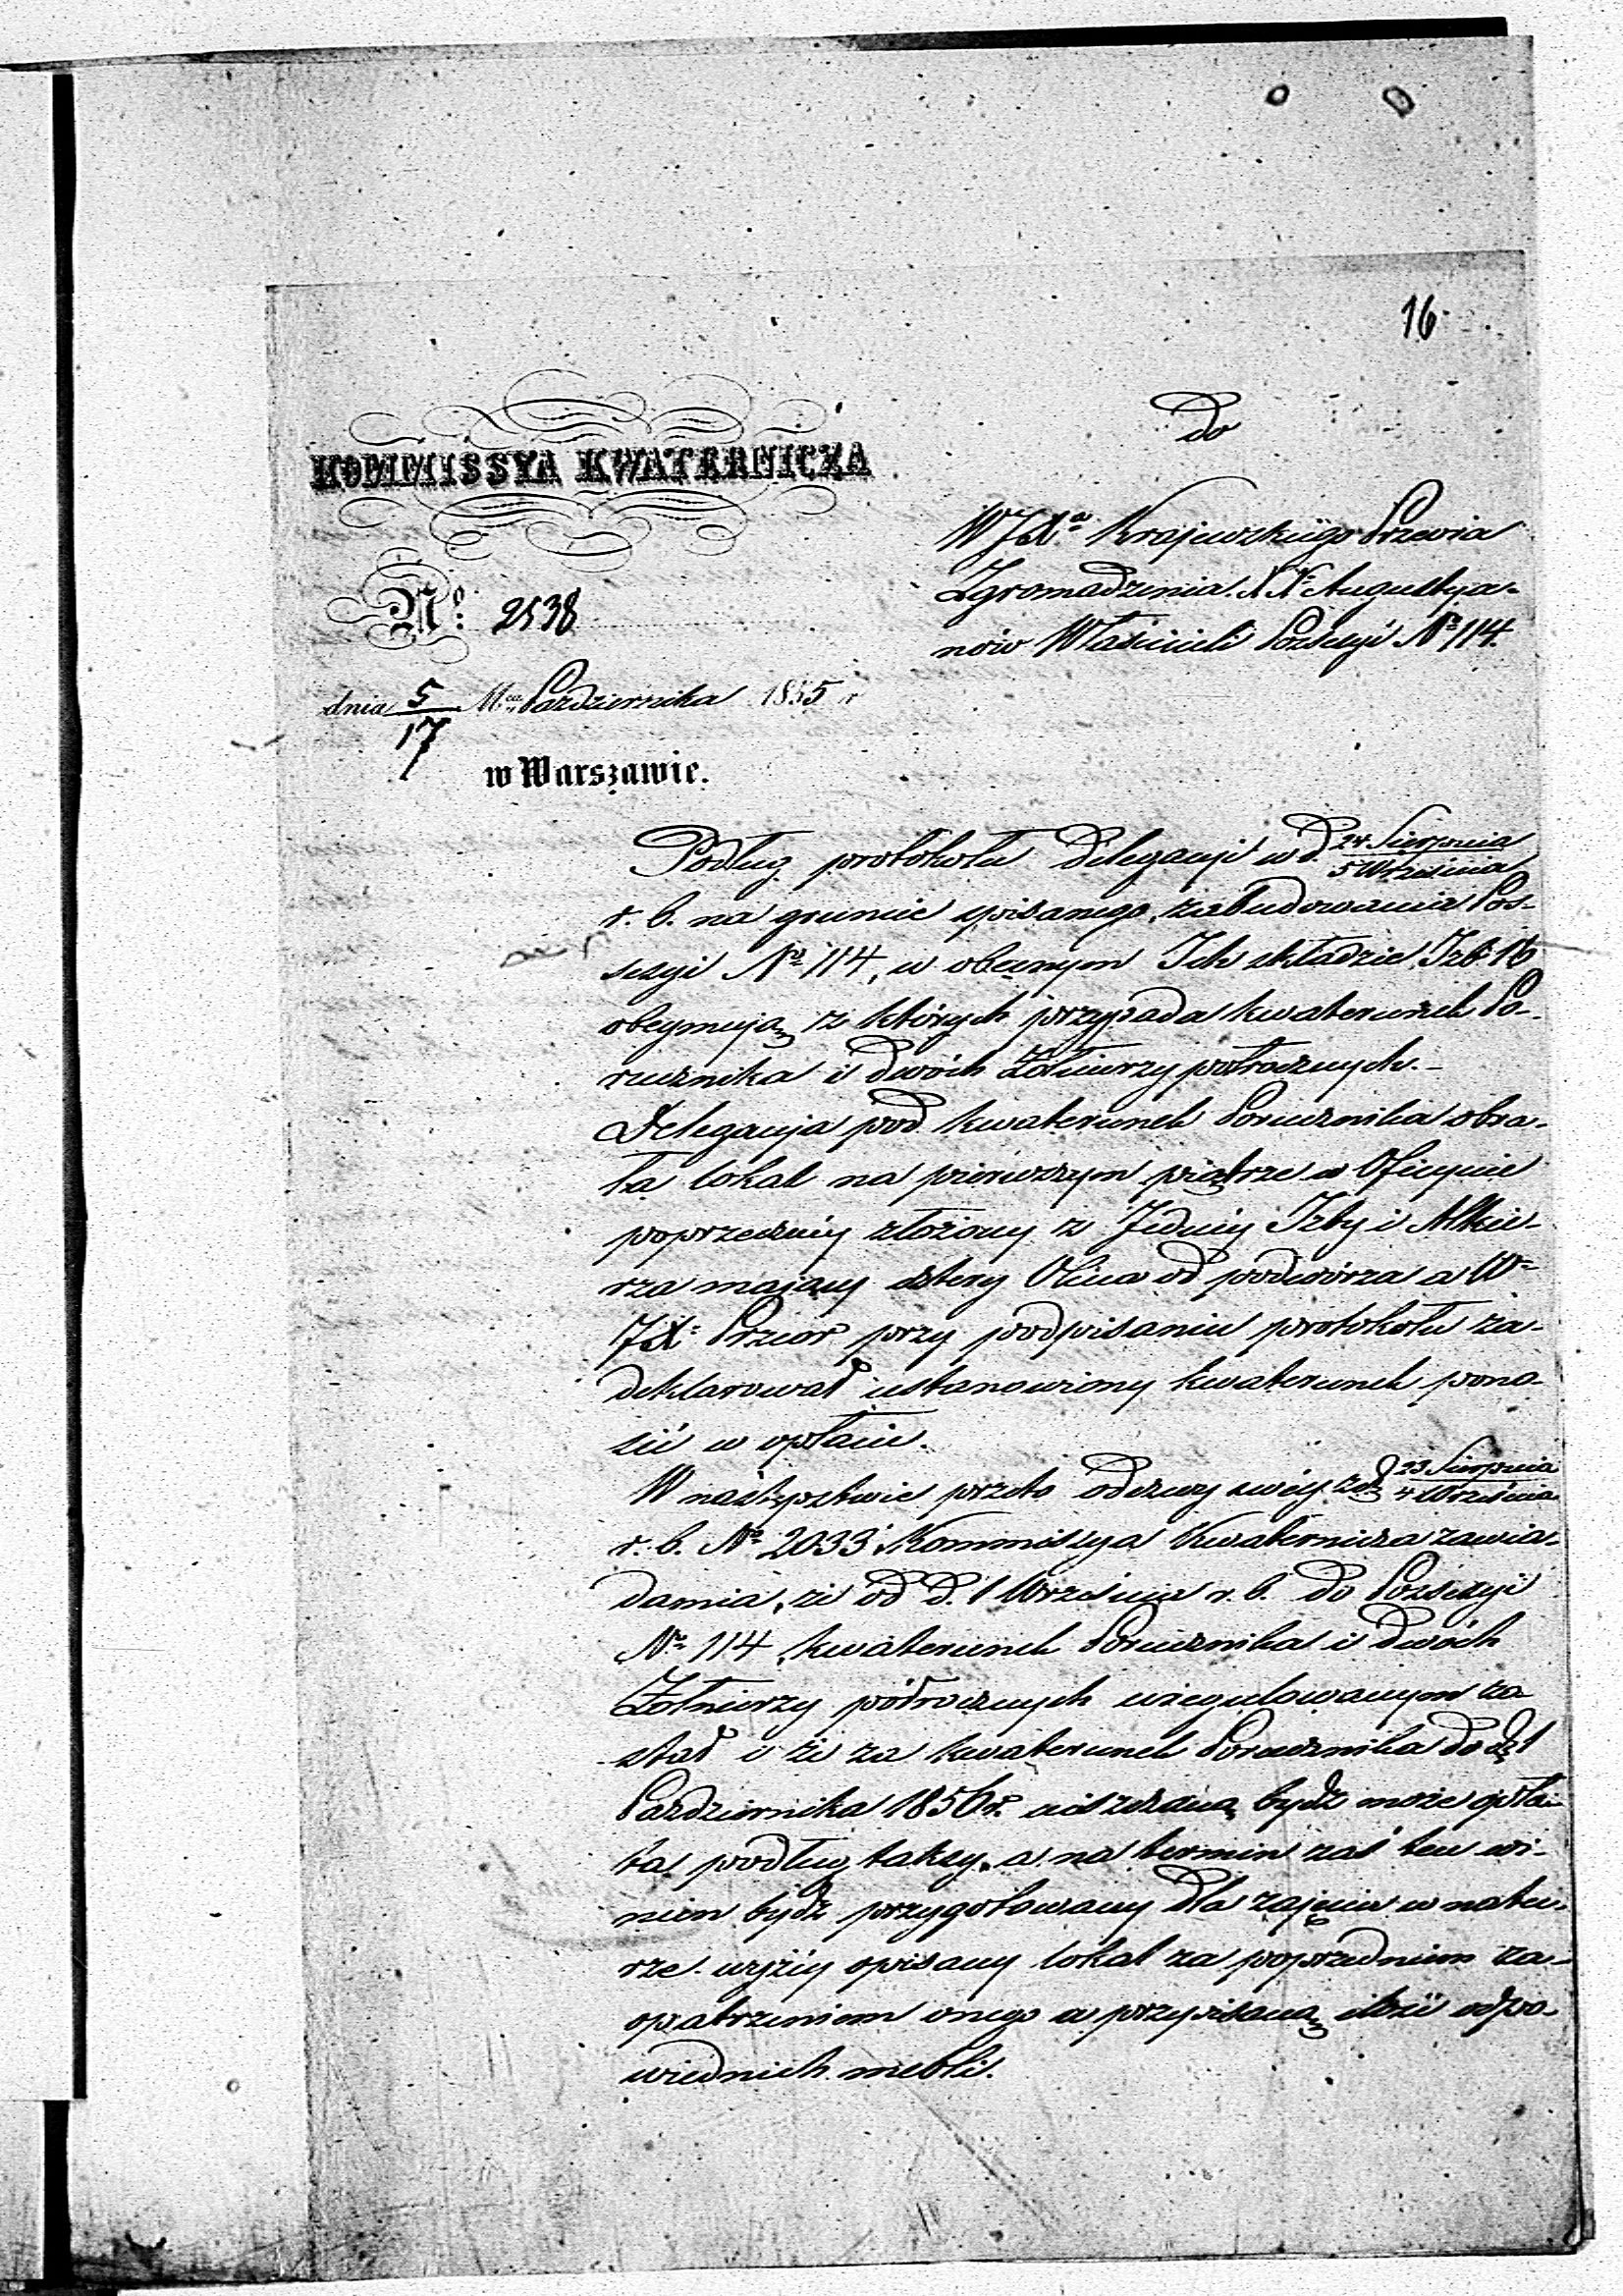 16
KOMMISSYA KWATERNICZA
Nº 2538
dnia 5/17 Mca Pazdziernika 1855 r
w Warszawie.
Do
WJXa Krajewskiego Przeora
Zgromadzenia XX. Augustya-
nów Właścicieli Possesyi Nº 114.
Podług protokołu Delegacyi w d. 24 Sierpnia / 5 Września
r. b. na gruncie spisanego, zabudowania Pos-
sesyi Nº 114, w obecnym Ich składzie Izb 16
obeymują, z których przypada kwaterunek Po-
rucznika i dwóch Żołnierzy półrocznych. –
Delegacja pod kwaterunek Porucznika obra-
ła lokal na pierwszym piętrze w Oficynie
poprzeczney złożony z Jedney Izby i Alkie-
rza mający cztery Okna od podwórza a W
JX. Przeor przy podpisaniu protokołu za-
deklarował ustanowiony kwaterunek pono-
sić w opłacie.
W następstwie przeto odezwy swéy z d. 23 Sierpnia / 4 Września
r. b. Nº 2033 Kommissya Kwaternicza zawia-
damia, że od d. 1 Września r. b. do Possesyi
Nº 114, kwaterunek Porucznika i dwóch
Żołnierzy półrocznych uregulowanym zo-
stał i że za kwaterunek Porucznika do d. 1
Pazdziernika 1856 r. uiszczaną bydź może opła-
ta podług taksy, a na termin zaś ten wi-
nien bydź przygotowany dla zajęcia w natu-
rze wyżéy opisany lokal za poprzedniem za-
opatrzeniem onego w przepisaną ilość odpo-
wiednich mebli.